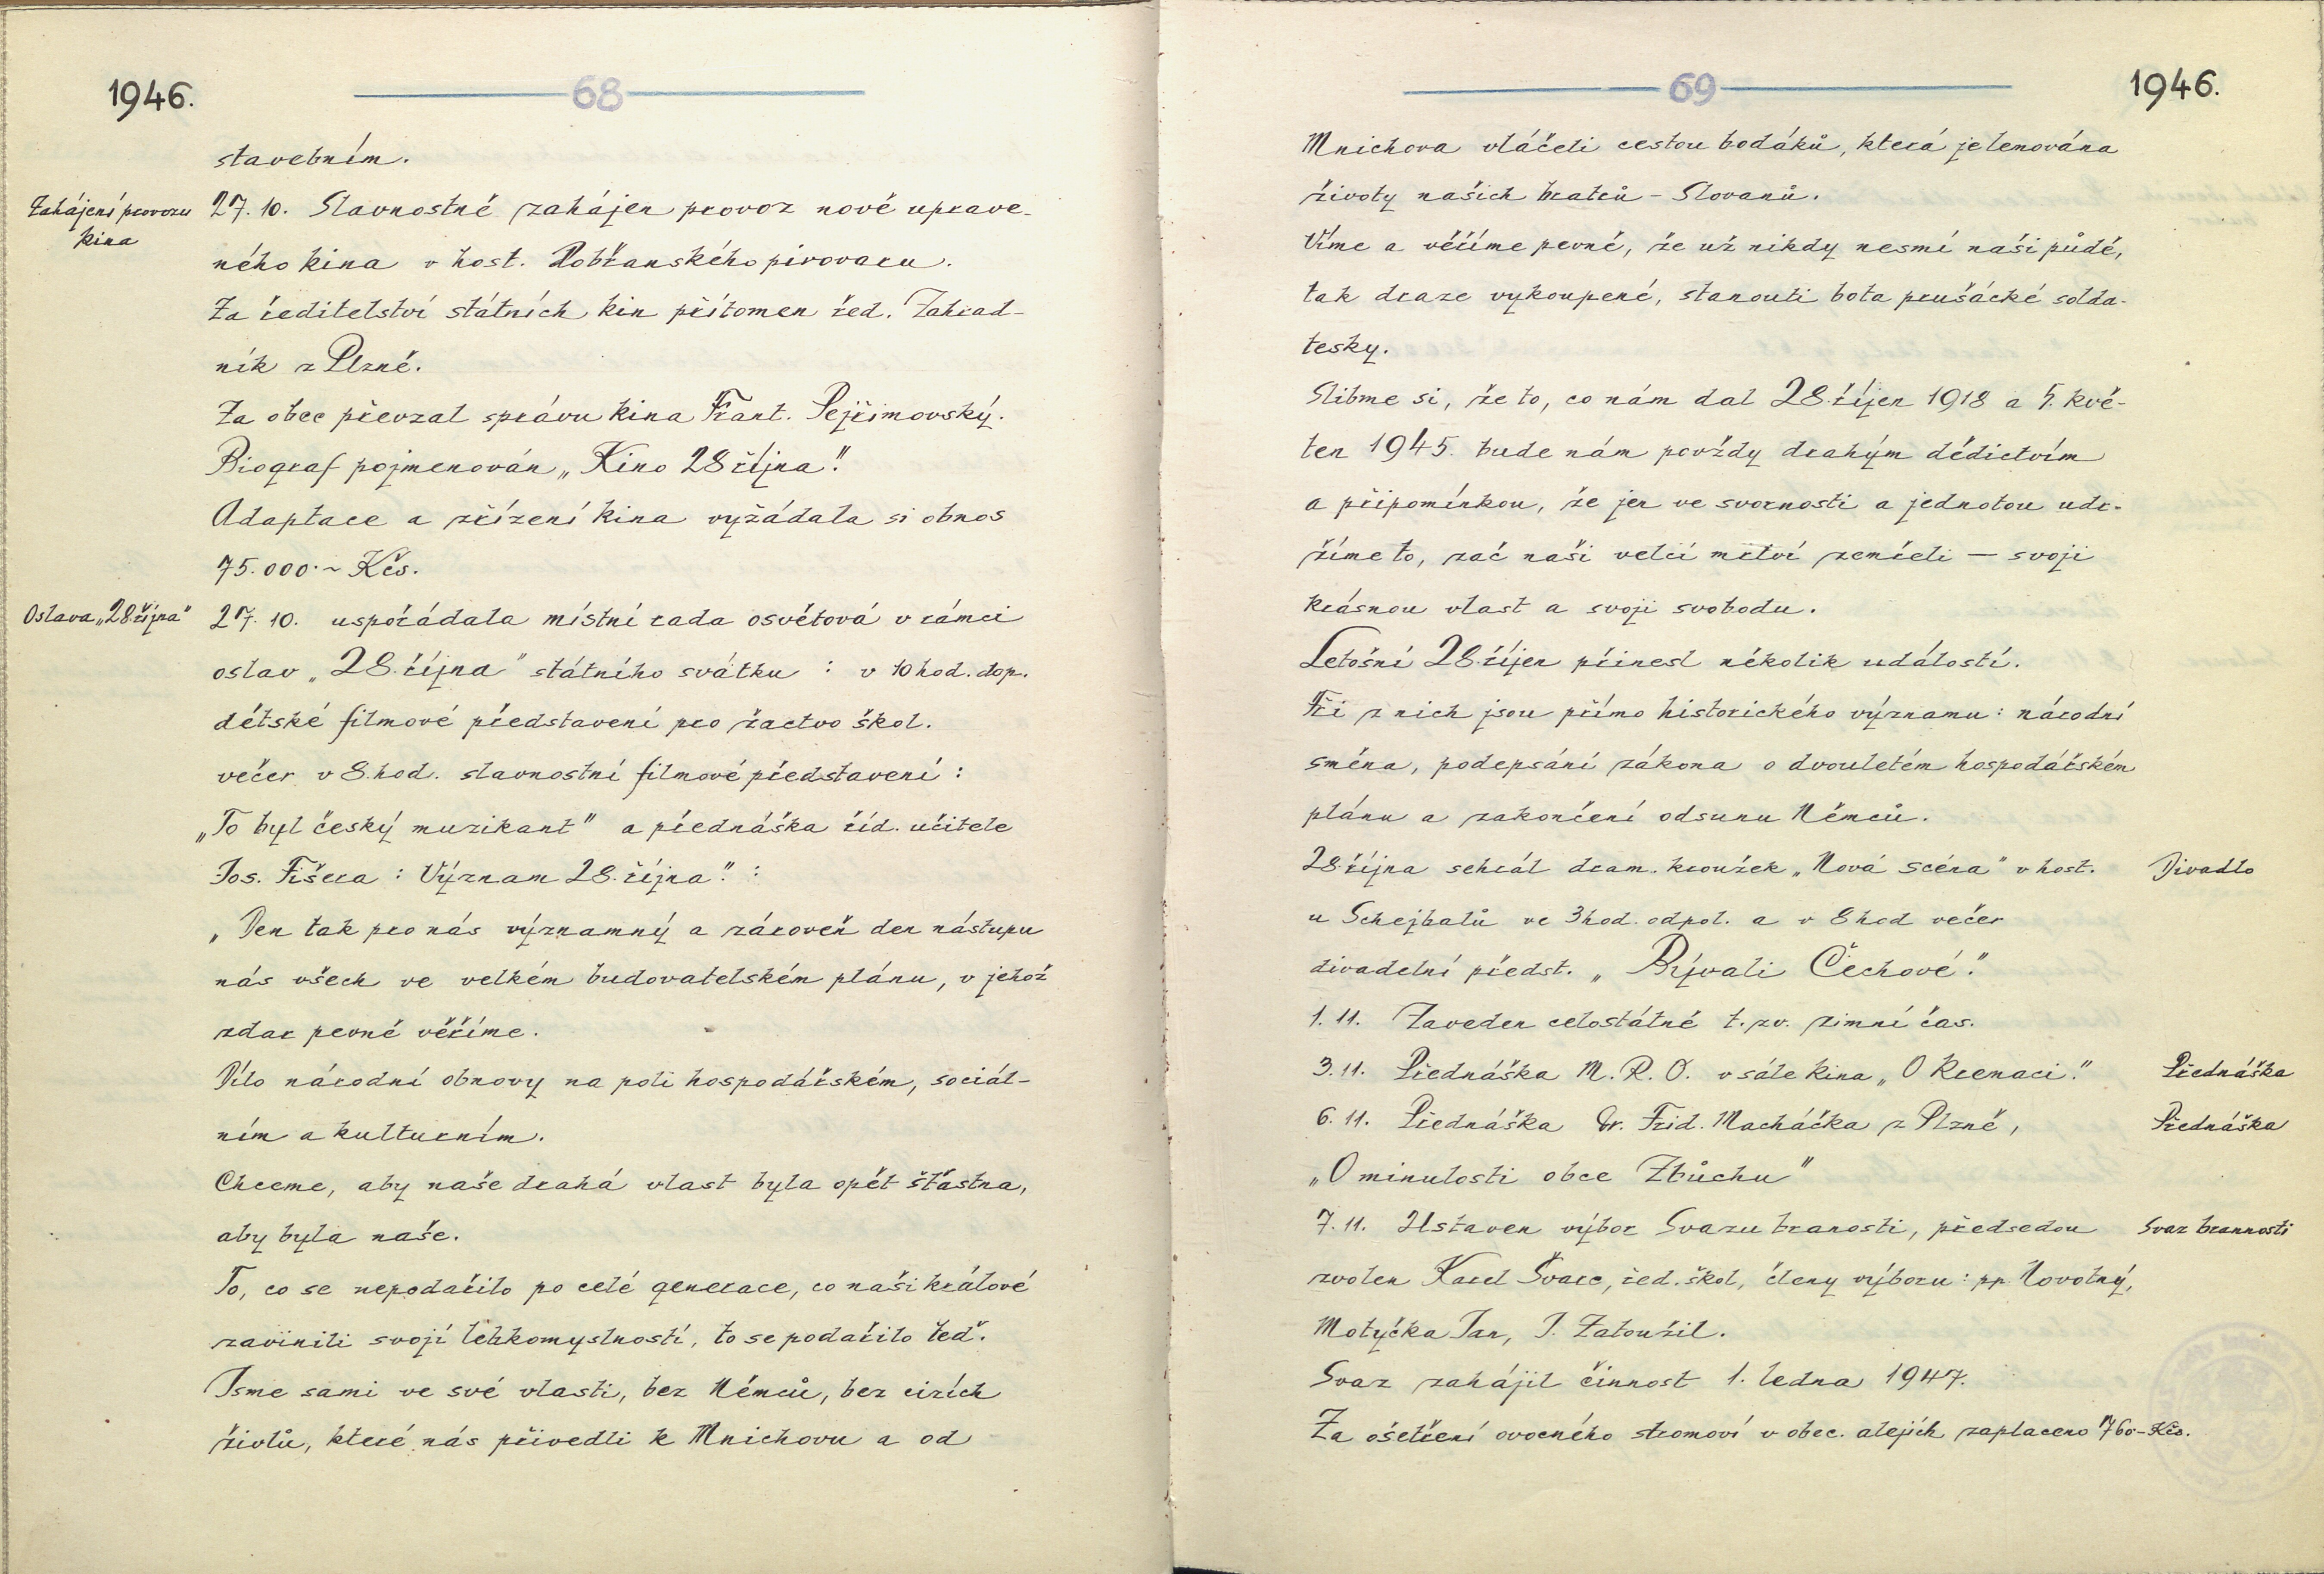 1946.
68
stavebním.
Zahájení provozu
kina
27. 10. Slavnostně zahájen provoz nově uprave-
ného kina v host. Dobřanského pivovaru.
Za ředitelství státních kin přítomen řed. Zahrad-
ník z Plzně.
Za obec převzal správu kina Frant. Pejřimovský.
Biograf pojmenován „Kino 28 října".
Adaptace a zřízení kina vyžádala si obnos
75.000.- Kčs.
Oslava „28.října"
27. 10. uspořádala místní rada osvětová v rámci
oslav „28. října" státního svátku : v 10 hod. dop.
dětské filmové představení pro žactvo škol.
večer v 8. hod. slavnostní filmové představení :
„To byl český muzikant" a přednáška říd. učitele
Jos. Fišera : Význam 28. října". :
„Den tak pro nás významný a zároveň den nástupu
nás všech ve velkém budovatelském plánu, v jehož
zdar pevně věříme.
Dílo národní obnovy na poli hospodářském, sociál-
ním a kulturním.
Chceme, aby naše drahá vlast byla opět šťastna,
aby byla naše.
To, co se nepodařilo po celé generace, co naši králové
zavinili svojí lehkomyslností, to se podařilo teď.
Jsme sami ve své vlasti, bez Němců, bez cizích
živlů, které nás přivedli k Mnichovu a od
69
1946.
Mnichova vláčeli cestou bodáků, která je lemována
životy našich bratrů - Slovanů.
Víme a věříme pevně, že už nikdy nesmí naši půdě,
tak draze vykoupené, stanouti bota prušácké solda-
tesky.
Slibme si, že to, co nám dal 28. říjen 1918 a 5. kvě-
ten 1945. bude nám povždy drahým dědictvím
a připomínkou, že jen ve svornosti a jednotou udr-
žíme to, zač naši velcí mrtví zemřeli — svoji
krásnou vlast a svoji svobodu.
Letošní 28. říjen přinesl několik událostí.
Tři z nich jsou přímo historického významu : národní
směna, podepsání zákona o dvouletém hospodářském
plánu a zakončení odsunu Němců.
28. října sehrál dram. kroužek „Nová scéna" v host.
Divadlo
u Schejbalů ve 3 hod. odpol. a v 8 hod večer
divadelní předst. „Bývali Čechové."
1. 11. Zaveden celostátně t. zv. zimní čas.
3. 11. Přednáška M. R. O. v sále kina „O kremaci."
Přednáška
6. 11. Přednáška Dr. Frid. Macháčka z Plzně,
Přednáška
„O minulosti obce Zbůchu"
7. 11. Ustaven výbor Svazu branosti, předsedou
Svaz brannosti
zvolen Karel Švarc, řed. škol, členy výboru : pp. Novotný,
Motyčka Jan, J. Zatoužil.
Svaz zahájil činnost 1. ledna 1947.
Za ošetření ovocného stromoví v obec. alejích zaplaceno 760.- Kčs.